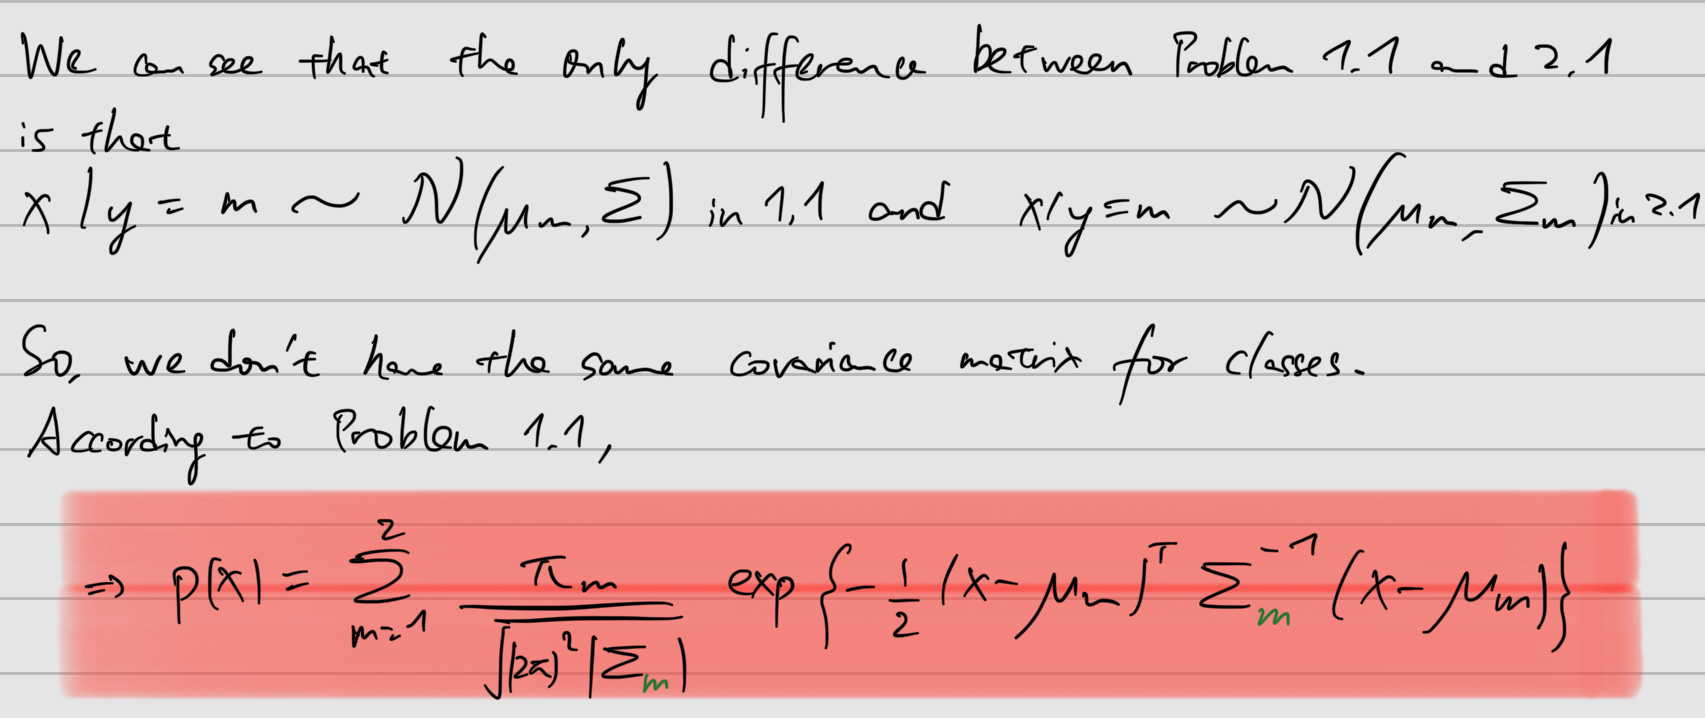 We can see that the only difference between Problem 1.1 and 2.1
is that
x | y = m ~ N(μm, Σ) in 1.1 and x | y = m ~ N(μm, Σm) in 2.1
So, we don't have the same covariance matrix for classes.
According to Problem 1.1,
⇒ p(x) = Σ_{m=1}^{2} πm / √((2π)² |Σm|) exp{ -1/2 (x - μm)^T Σm^{-1} (x - μm) }